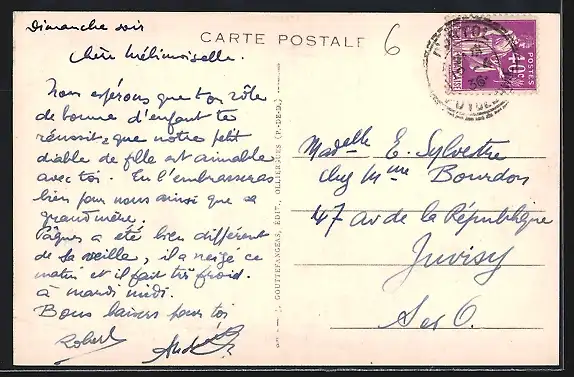 Dimanche soir
CARTE POSTALE
6
Chère Mélimoiselle.
Nous espérons que ton rôle
de bonne d'enfant te
réussit, que notre petit
diable de fille est aimable
avec toi. Tu l'embrasseras
bien pour nous ainsi que sa
grand'mère.
Pâques a été bien différent
de la veille, il a neigé ce
matin et il fait très froid.
à mardi midi.
Bons baisers pour toi
Robert
GOUTTEFANGEAS, ÉDIT., OLLIERGUES (P.-DE-D.)
POSTES
40c
Madelle E. Sylvestre
chez Mme Bourdon
47 av de la République
Juvisy
S et O.